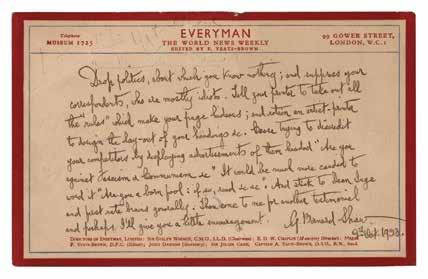 Telephone
MUSEUM 1725
EVERYMAN
THE WORLD NEWS WEEKLY
EDITED BY F. YEATS-BROWN
99 GOWER STREET,
LONDON, W.C.1
Drop politics, about which you know nothing; and suppress your
correspondents, who are mostly idiots. Tell your printer to take out all
the "rules" which make your page hideous; and retain an artist-printer
to design the lay-out of your headings &c. Cease trying to discredit
your competitors by displaying advertisements of them headed "Are you
against Fascism & Communism &c" It would be much more candid to
word it "Are you a born fool: if so, read so & so." And stick to Dean Inge
and first rate brains generally. Then come to me for another testimonial
and perhaps I'll give you a little encouragement.
G. Bernard Shaw
9th Oct. 1933.
DIRECTORS OF EVERYMAN, LIMITED: SIR